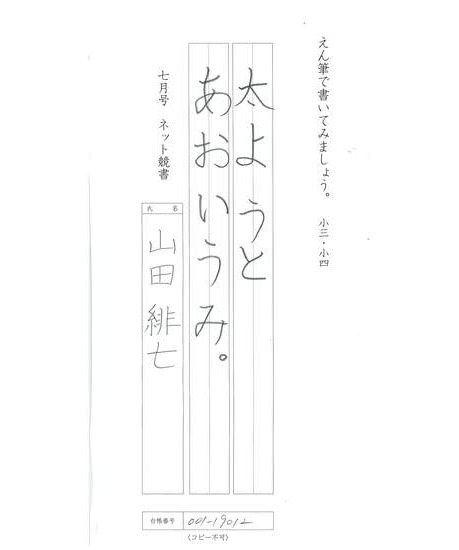 えん筆で書いてみましょう。 小三・小四
太ようと
あおいうみ。
七月号 ネット競書
氏名
山田 緋七
台帳番号 001-19012
〈コピー不可〉